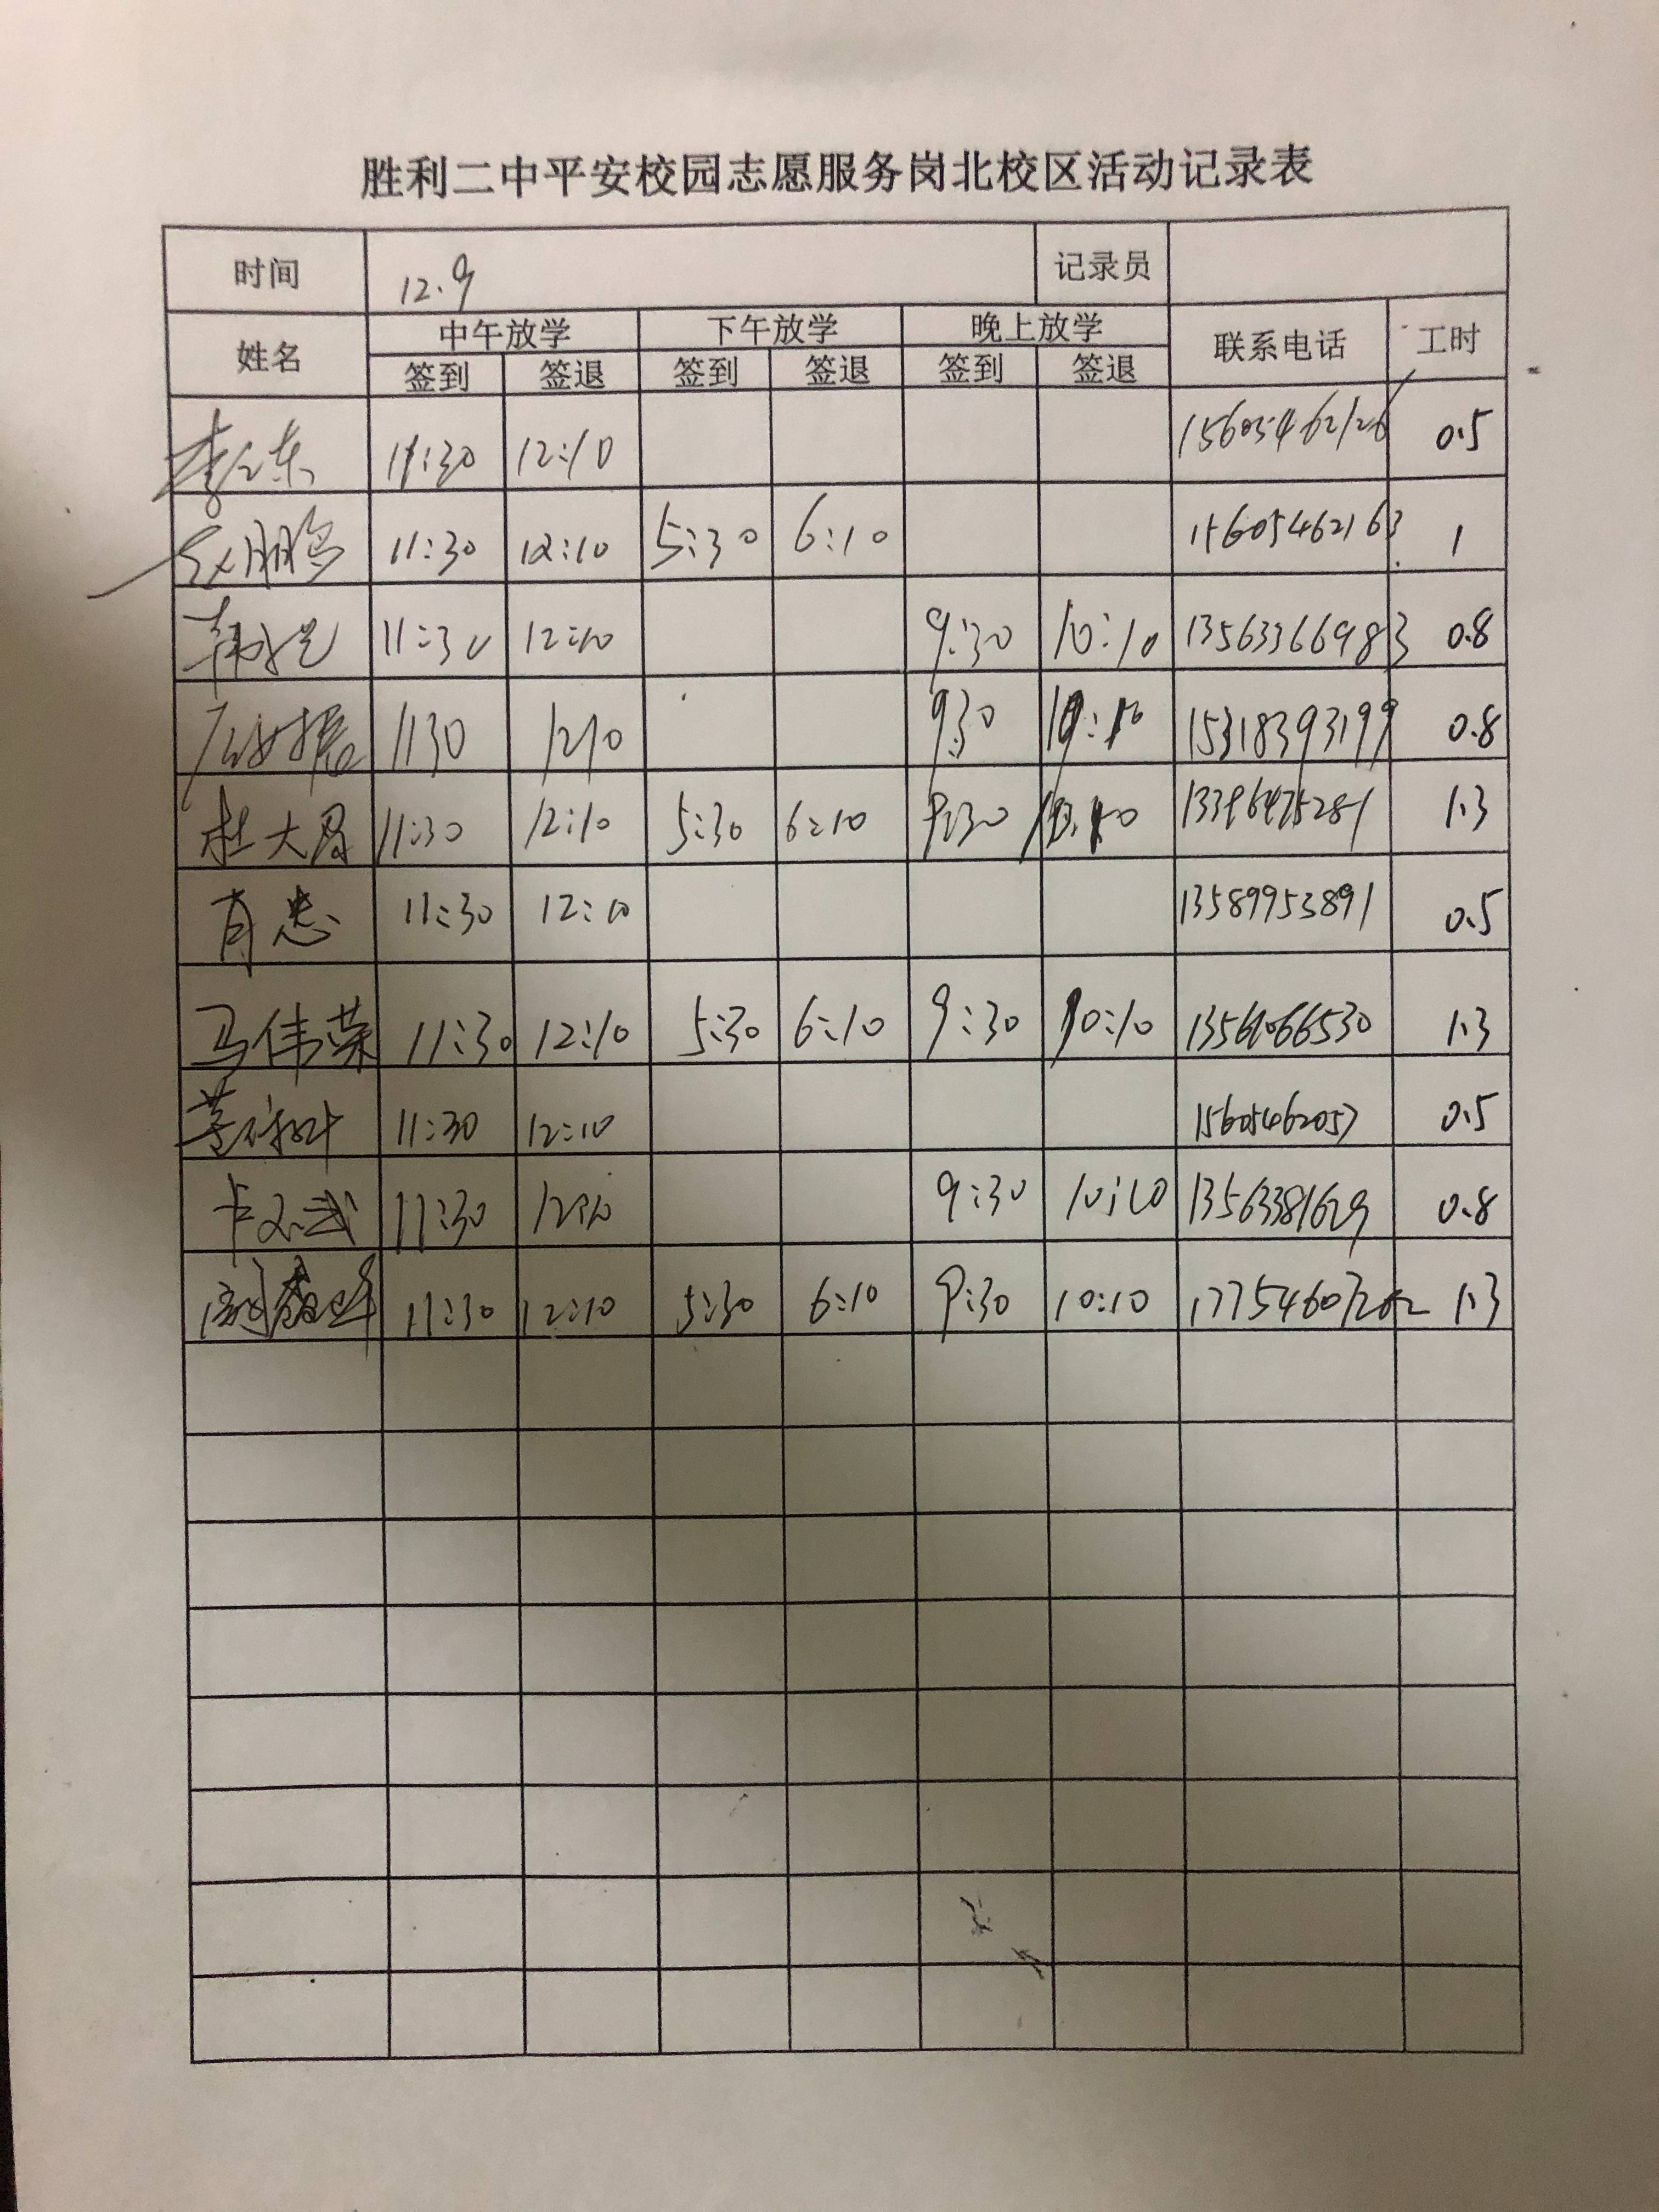 胜利二中平安校园志愿服务岗北校区活动记录表
时间 12.9 记录员
姓名 中午放学 下午放学 晚上放学 联系电话 工时
签到 签退 签到 签退 签到 签退
11:30 12:10 15605462126 0.5
11:30 12:10 5:30 6:10 15605462163 1
11:30 12:10 9:30 10:10 13563366983 0.8
1130 1210 930 10:10 15318393199 0.8
杜大昌 11:30 12:10 5:30 6:10 9:30 13396475281 1.3
肖忠 11:30 12:10 13589953891 0.5
马伟荣 11:30 12:10 5:30 6:10 9:30 10:10 1.3
11:30 12:10 15605462057 0.5
11:30 12:10 9:30 10:10 13563381629 0.8
11:30 12:10 5:30 6:10 9:30 10:10 1.3